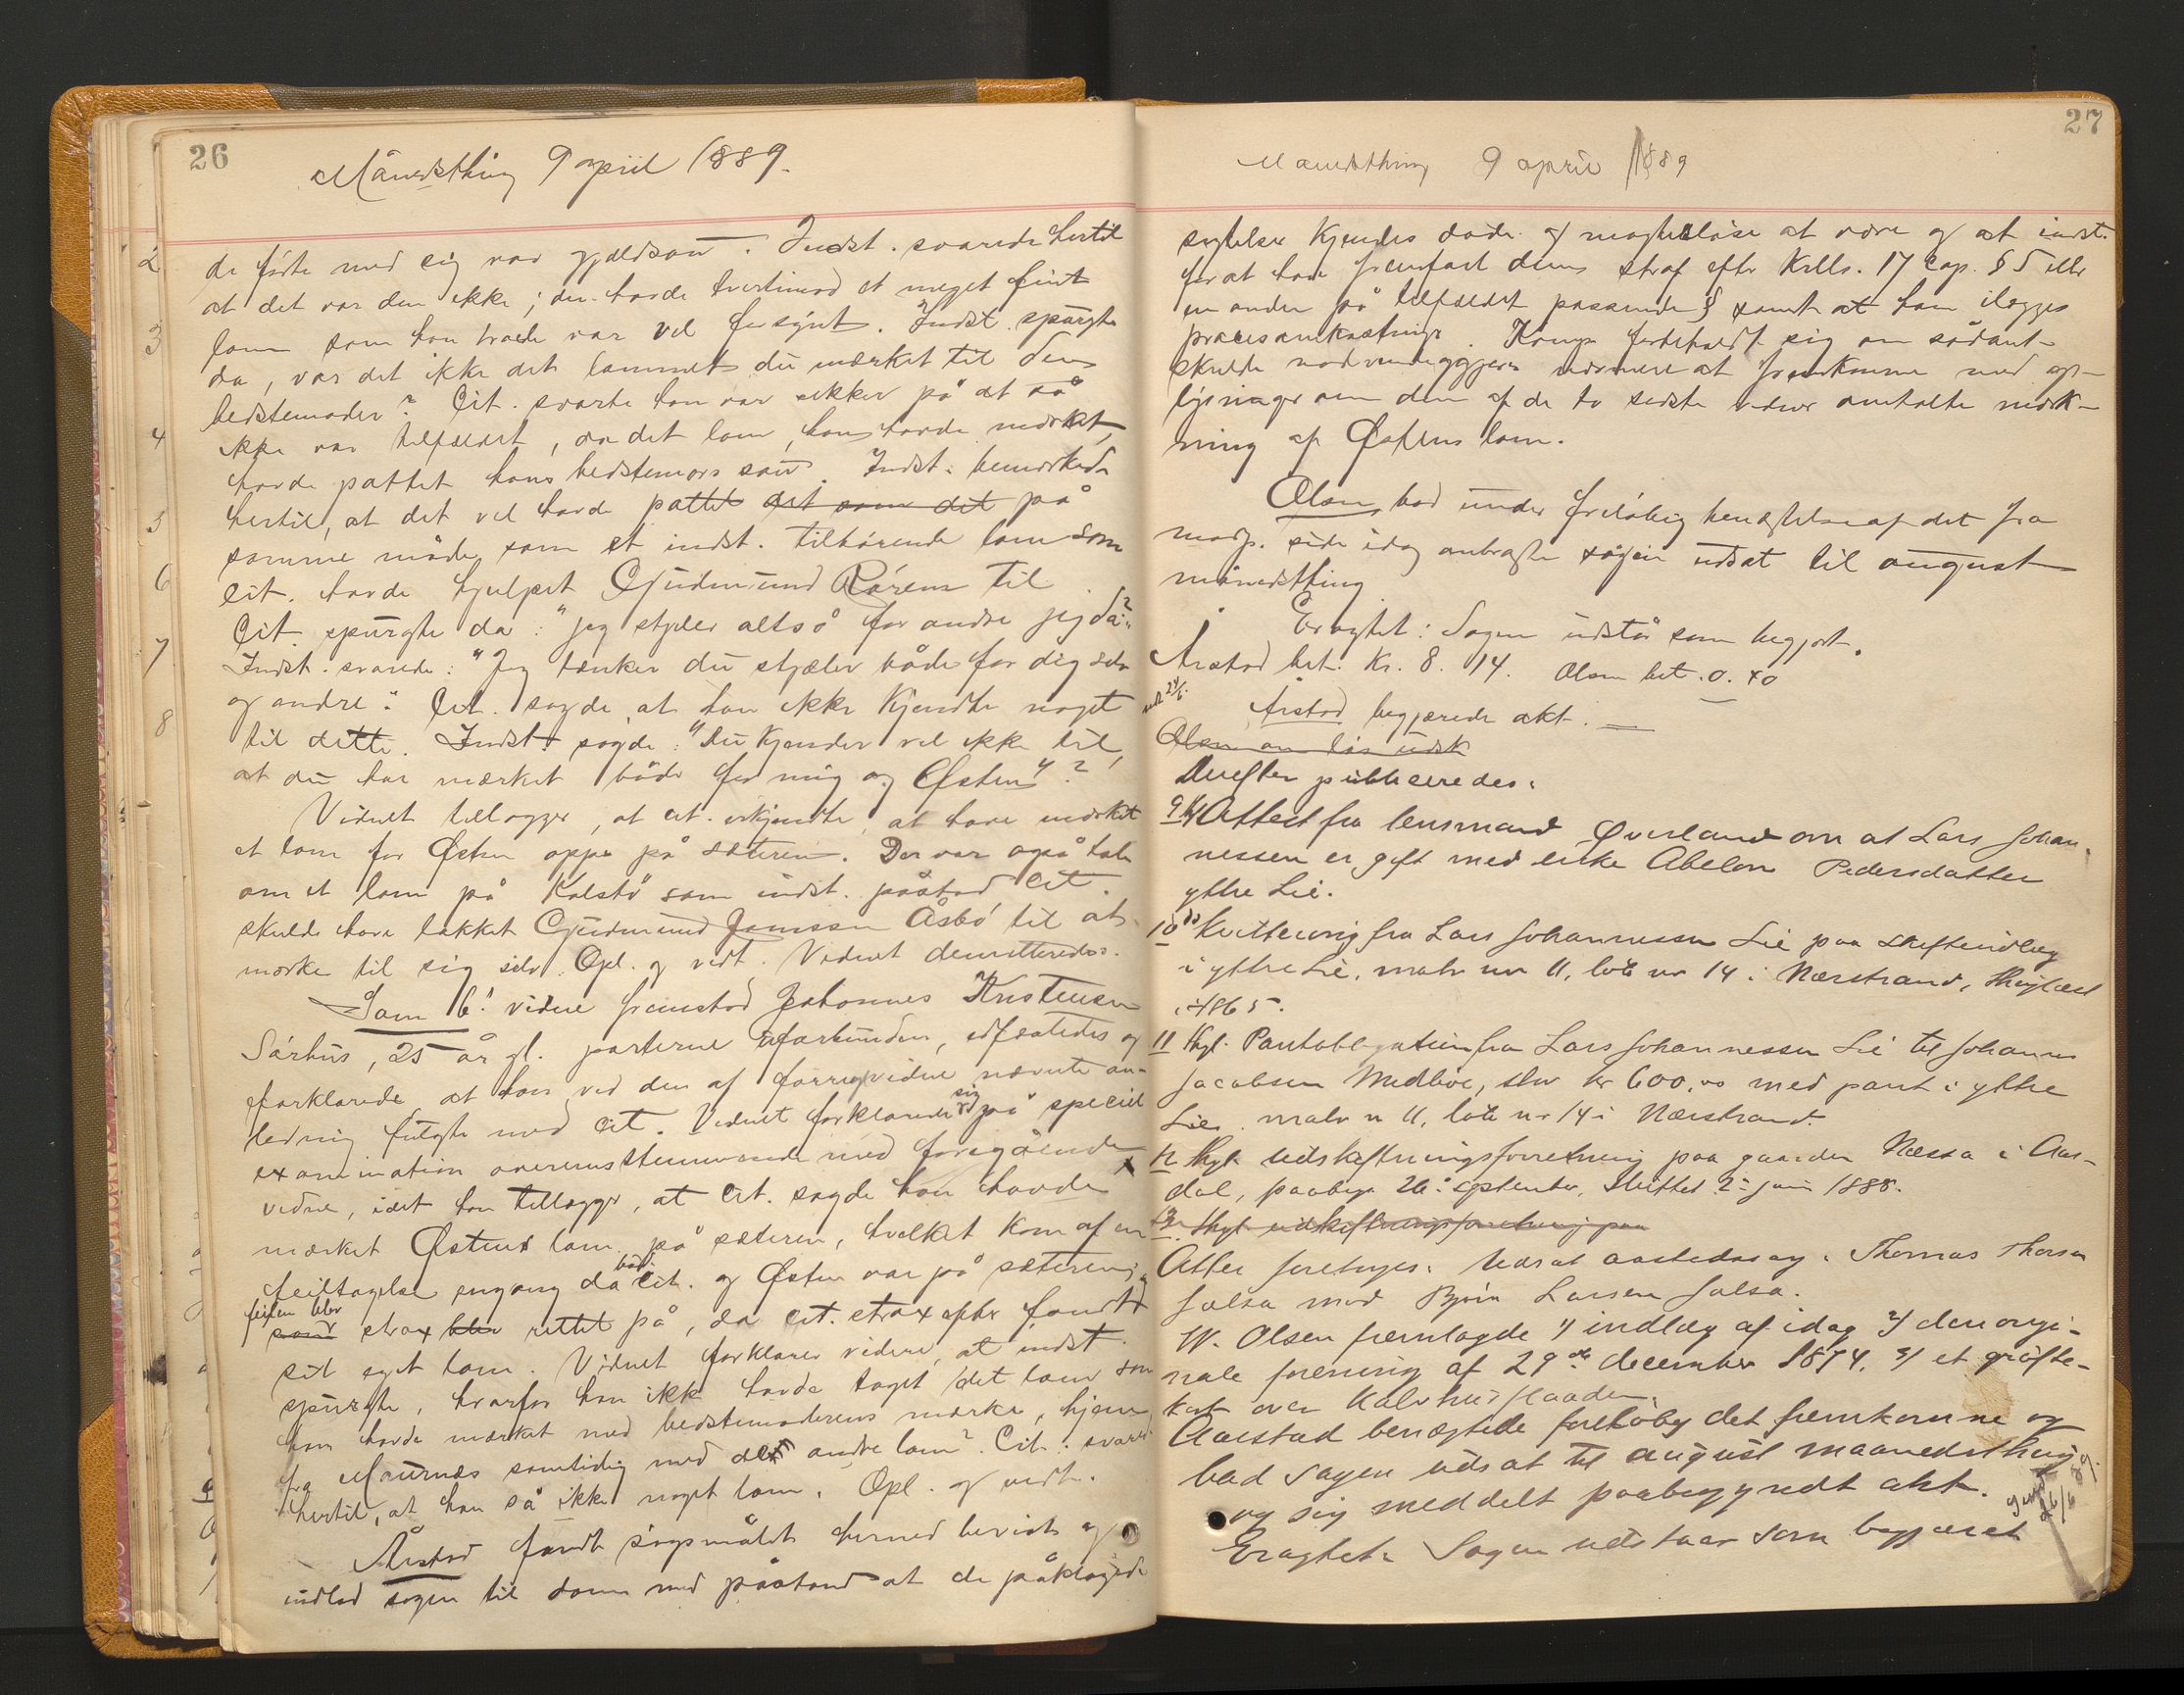 26
Månedsthing 9 april 1889.
de førte med sig var gjældsau. Indst. svarede hertil
at det var den ikke; den havde hvertimod et meget fint
lam som han troede var vel forsynt. Indst. spurgte
da, var det ikke det lammet du mærket til din
bedstemoder? Cit. svarte han var sikker på at så
ikke var tilfældet, da det lam, han havde mærket,
havde pattet hans bedstemors sau. Indst. bemærkede
hertil, at det vel havde pattet det som det på
samme måde som et indst. tilhørende lam som
cit. havde hjulpet Gudmund Rørem til
Cit. spurgte da: "jeg stjeler altså for andre jeg da?"
Indst. svarede: "Jeg tænker du stjæler både for dig selv
og andre." Cit. sagde, at han ikke kjendte noget
til dette. Indst. sagde: "Du kjender vel ikke til,
at du har mærket både for mig og Østen"?
Vidnet tillægger, at cit. erkjendte, at have mærket
et lam for Østen oppe på sæteren. Der var også tale
om et lam på Kolstø som indst. påstod cit.
skulde have lakket Gudmund Jonssen Åsbø til at
mærke til sig selv. Opl. og vedt. Vidnet demitteredes.
Som 6. vidne fremstod Johannes Kristensen
Sørhus, 25 år gl. parterne uforbunden, edfæstedes og
forklarede at han ved den af forrige vidne nævnte an-
ledning fulgte med cit. Vidnet forklarede sig på speciel
examination overensstemmende med foregående
vidne, idet han tillægger, at cit. sagde han havde
mærket Østens lam på sæteren, hvilket kom af en
feiltagelse engang da både cit. og Østen var på sæteren, og
feilen blev
som strax blev rettet på, da cit. strax efter fandt
sit eget lam. Vidnet forklarer videre, at indst.
spurgte, hvorfor han ikke havde taget det lam som
han havde mærket med bedstemoderens mærke, hjem
fra Maurnæs samtidig med det andre lam? Cit. svarede
hertil, at han så ikke noget lam. Opl. og vedt.
Årstad fandt søgsmålet hermed bevist og
indlod sagen til doms med påstand at de påklagede
27
Maanedsthing 9 april 1889
sigtelser kjendes døde og magtesløse at være og at indst.
for at have fremført dem straf efter Krlls. 17 Cap. § 5 eller
en anden på tilfældet passende § samt at han ilægges
procesomkostninger. Komp. forbeholdt sig om sådant
skulde nødvendiggjøres nærmere at fremkomme med op-
lysninger om den af de to sidste vidner omtalte mærk-
ning af Østens lam.
Olsen bad under foreløbig benægtelse af det fra
modp. side idag anbragte sagen udsat til august
månedsthing
Eragtet: Sagen udstår som begjært.
Årstad bet. Kr. 8. 14. Olsen bet. 0. 40
Årstad begjærede akt.
Olsen om løs udsk
Derefter publiceredes:
9 Attest fra lensmand Øverland om at Lars Johan-
nessen er gift med enke Abelone Pedersdatter
ythre Lie.
10 do Kvittering fra Lars Johannessen Lie paa skifteudlæg
i ythre Lie, matr nr 11, løbe nr 14 i Nærstrand, thinglæst
i 1865.
11 thgl. Pantobligation fra Lars Johannessen Lie til Johannes
Jacobsen Medbøe, stor kr 600,00 med pant i ythre
Lie. matr n 11, løbe nr 14 i Nærstrand.
12 thgl. Udskiftningsforretning paa gaarden Næssa i Aar-
dal, paabeg. 26. september, sluttet 2. juni 1888.
13 thgl. udskiftningsforretning paa
Atter foretoges: Udsat aastedssag: Thomas Thorsen
Jalsa mod Bjørn Larsen Jalsa.
W. Olsen fremlagde 1) indlæg af idag 2) den origi-
nale forening af 29de december 1874. 3) et grøfte-
kart over Kalvhusflaaden.
Aarstad benægtede foreløbig det fremkomne og
bad sagen udsat til august maanedsthing
og sig meddelt paabegyndt akt.
Eragtet: Sagen udstaar som begjæret